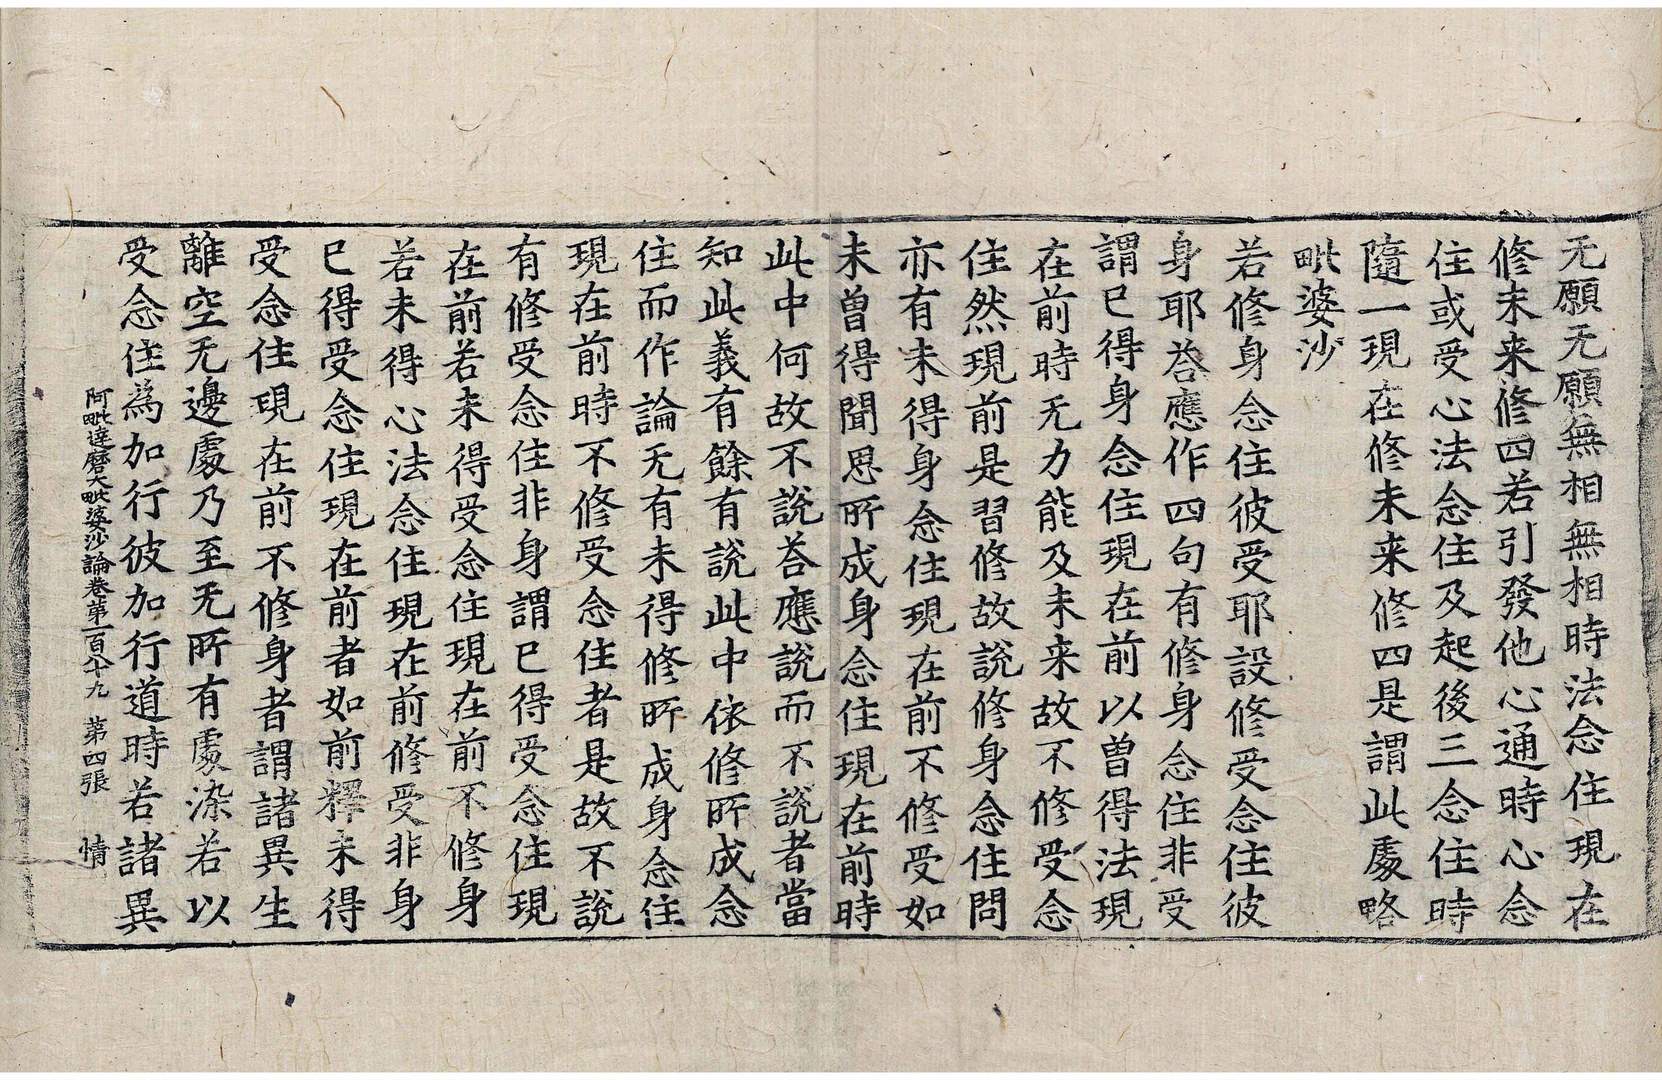 无願无願無相無相時法念住現在
修未来修四若引發他心通時心念
住或受心法念住及起後三念住時
隨一現在修未来修四是謂此處略
毗婆沙
若修身念住彼受耶設修受念住彼
身耶荅應作四句有修身念住非受
謂已得身念住現在前以曾得法現
在前時无力能及未来故不修受念
住然現前是習修故説修身念住問
亦有未得身念住現在前不修受如
未曾得聞思所成身念住現在前時
此中何故不説荅應説而不説者當
知此義有餘有説此中依修所成念
住而作論无有未得修所成身念住
現在前時不修受念住者是故不説
有修受念住非身謂已得受念住現
在前若未得受念住現在前不修身
若未得心法念住現在前修受非身
已得受念住現在前者如前釋未得
受念住現在前不修身者謂諸異生
離空无邊處乃至无所有處染若以
受念住為加行彼加行道時若諸異
阿毗達磨大毗婆沙論卷第一百八十九　第四張　情